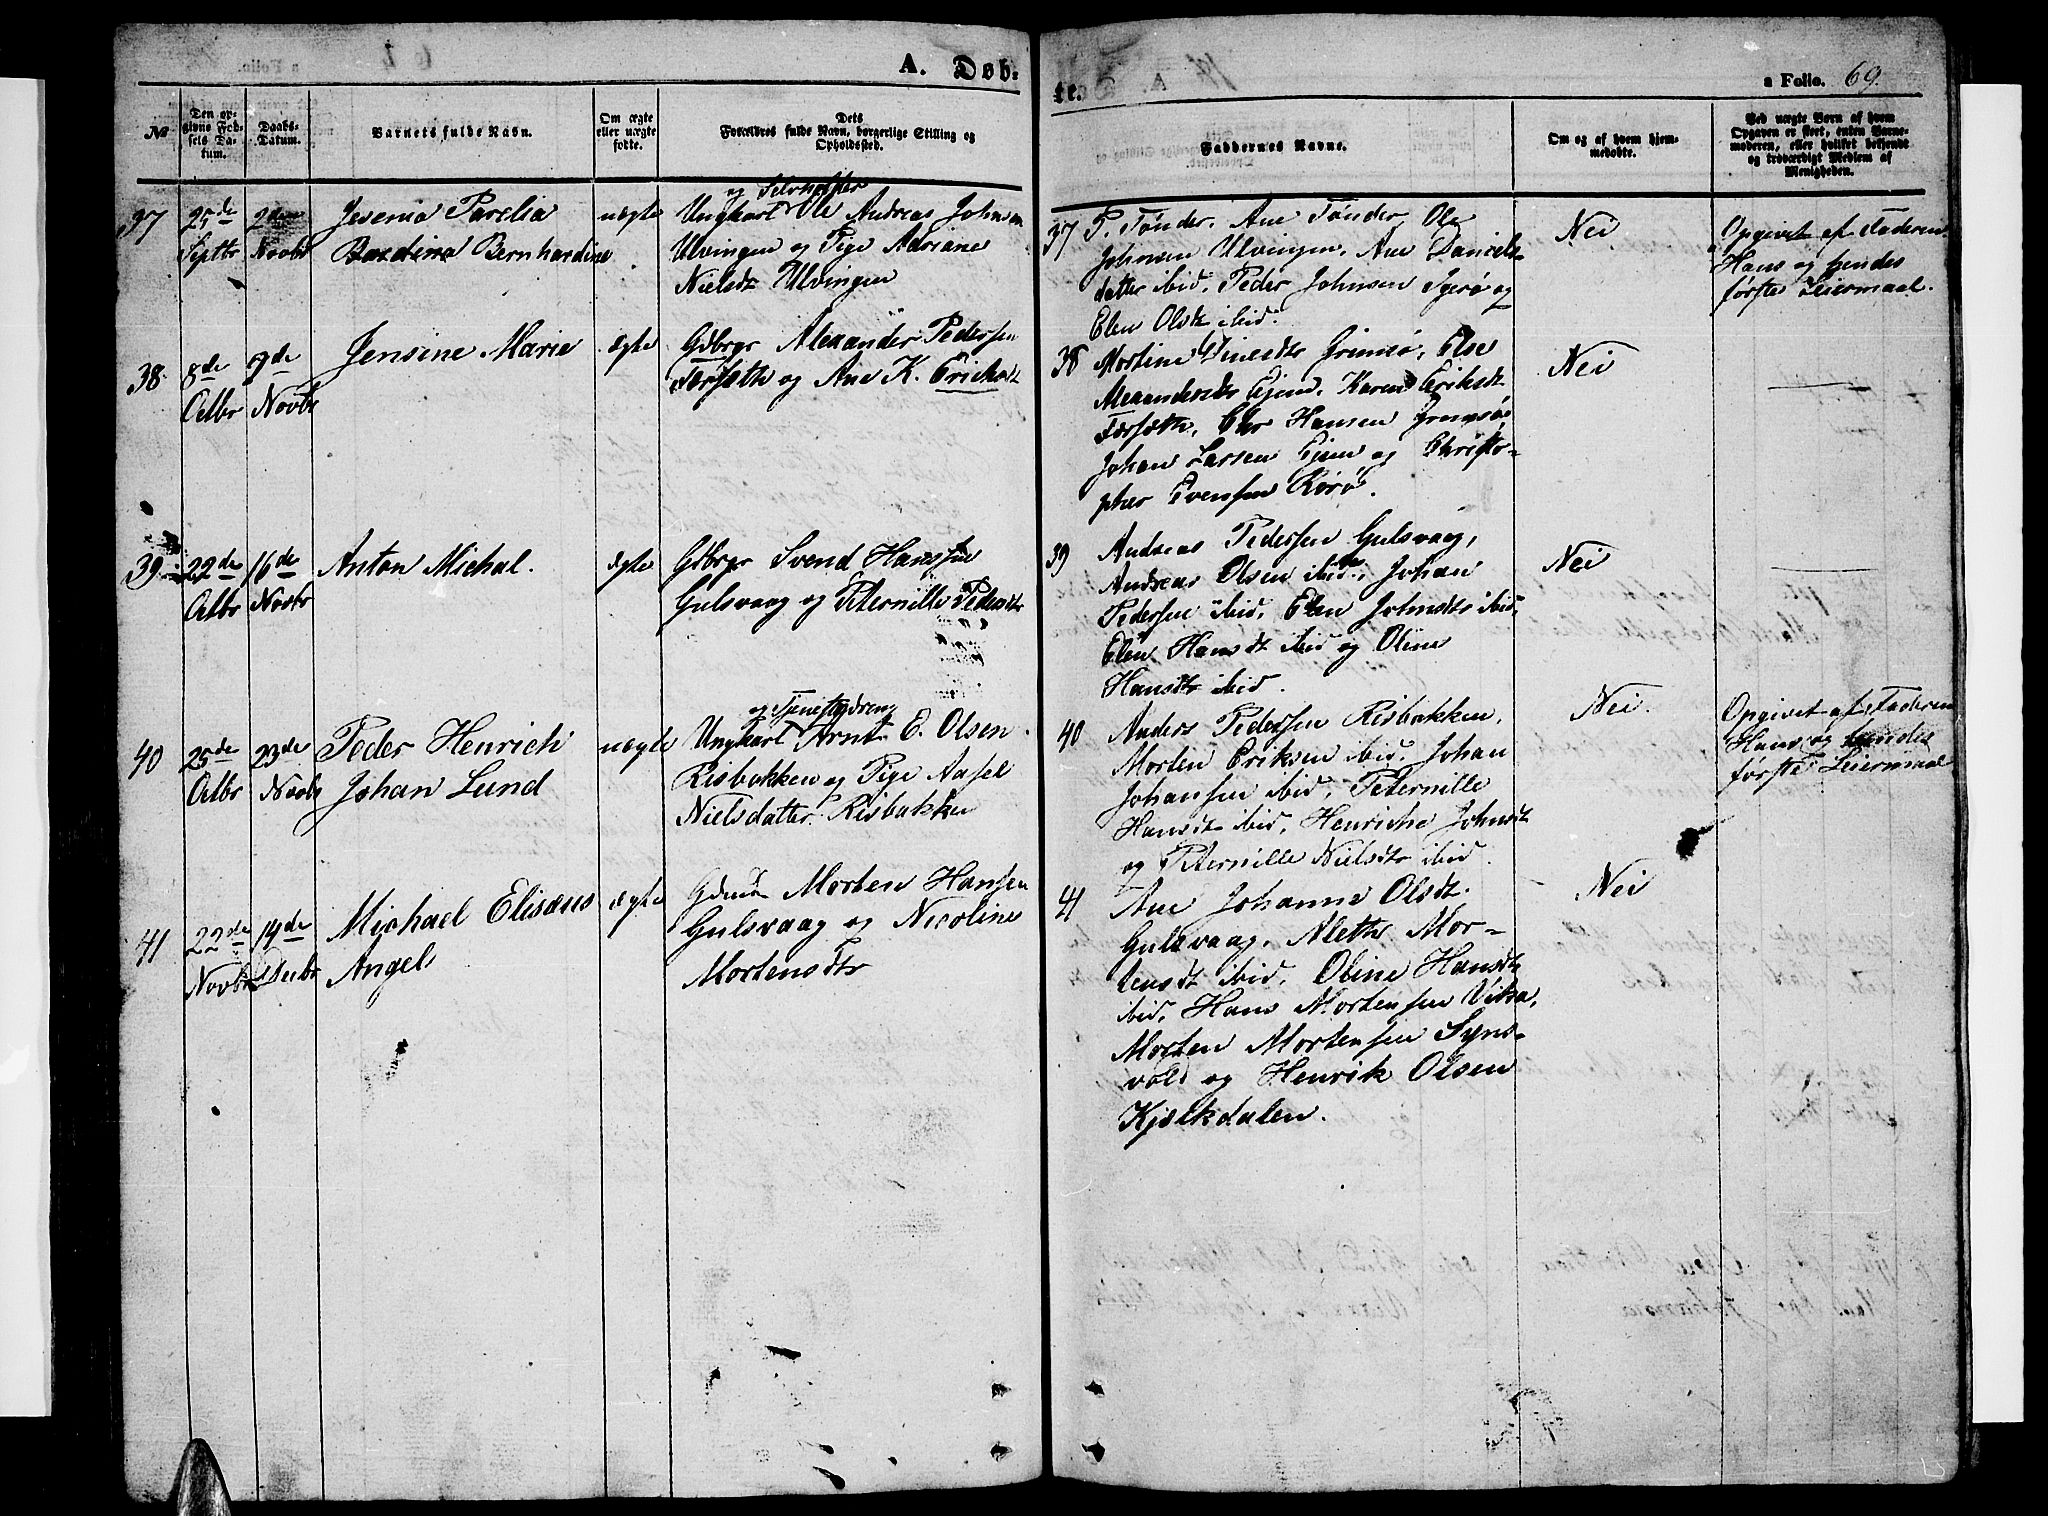 A. Døb-
№
Den op-
givne Fød-
sels Da-
tum.
Daabs-
Datum.
Barnets fulde Navn.
Om ægte
eller uægte
fødte.
Dets
Forældres fulde Navn, borgerlige Stilling og
Opholdssted.
37
25de
Septbr
2den
Novbr
Jesenia Parelia
Bernhardine
uægte
og Selvholster
Ungkarl Ole Andreas Johnsen
Ulvingen og Pige Adriane
Nielsdt Ulvingen
38.
8de
Octbr
9de
Novbr
Jensine Marie
ægte
Gdbrgr Alexander Pedersen
Forsæth og Ane K. Ericksdt
39
22de
Octbr
16de
Novbr
Anton Michal.
ægte
Gdbrgr Svend Hansen
Gulsvaag og Peternille Pedersdtr
40
25de
Octbr
23de
Novbr
Peder Henrich
Johan Lund
uægte
og Tjenestedreng
Ungkarl Arnt E. Olsen
Risbakken og Pige Aasel
Nielsdatter Risbakken
41
22de
Novbr
14de
Decbr
Michael Elisæus
Angel
ægte
Gdmd Morten Hansen
Gulsvaag og Nicoline
Mortensdtr
te.
a Folio. 69.
Faddernes Navne.
Om og af hvem hjem-
medøbte.
Ved uægte Børn af hvem
Opgaven er skeet, enten Barne-
moderen, eller hvilket bekjendt
og troværdigt Medlem af
Menigheden.
37 P. Tønder, Ane Tønder, Ole
Johnsen Ulvingen, Ane Daniels-
datter ibid, Peder Johnsen Igerø og
Elen Olsdt ibid.
Nei
Opgivet af Faderen
Hans og hendes
første Leiermaal.
38 Mortine Grimsø, Else
Alexandersdtr Ejem, Karen Eriksdt
Forsæth, Chr Hansen Grimsø,
Johan Larsen Ejem og Christo-
pher Evensen Rørø.
Nei
39 Andreas Pedersen Gulsvaag,
Andreas Olsen ibid, Johan
Pedersen ibid, Elen Johnsdtr ibid,
Elen Hansdt ibid og Oline
Hansdtr ibid.
Nei
40 Anders Pedersen Risbakken,
Morten Eriksen ibid, Johan
Johansen ibid, Peternille
Hansdt ibid, Henriche Johnsdt
og Peternille Nielsdtr ibid.
Nei.
Opgivet af Faderen
Hans og hendes
første Leiermaal
41 Ane Johanne Olsdt.
Gulsvaag, Alethe Mor-
tensdt ibid, Oline Hansdt
ibid, Hans Mortensen Viksa,
Morten Mortensen Syns-
vold og Henrik Olsen
Kjelkdalen.
Nei